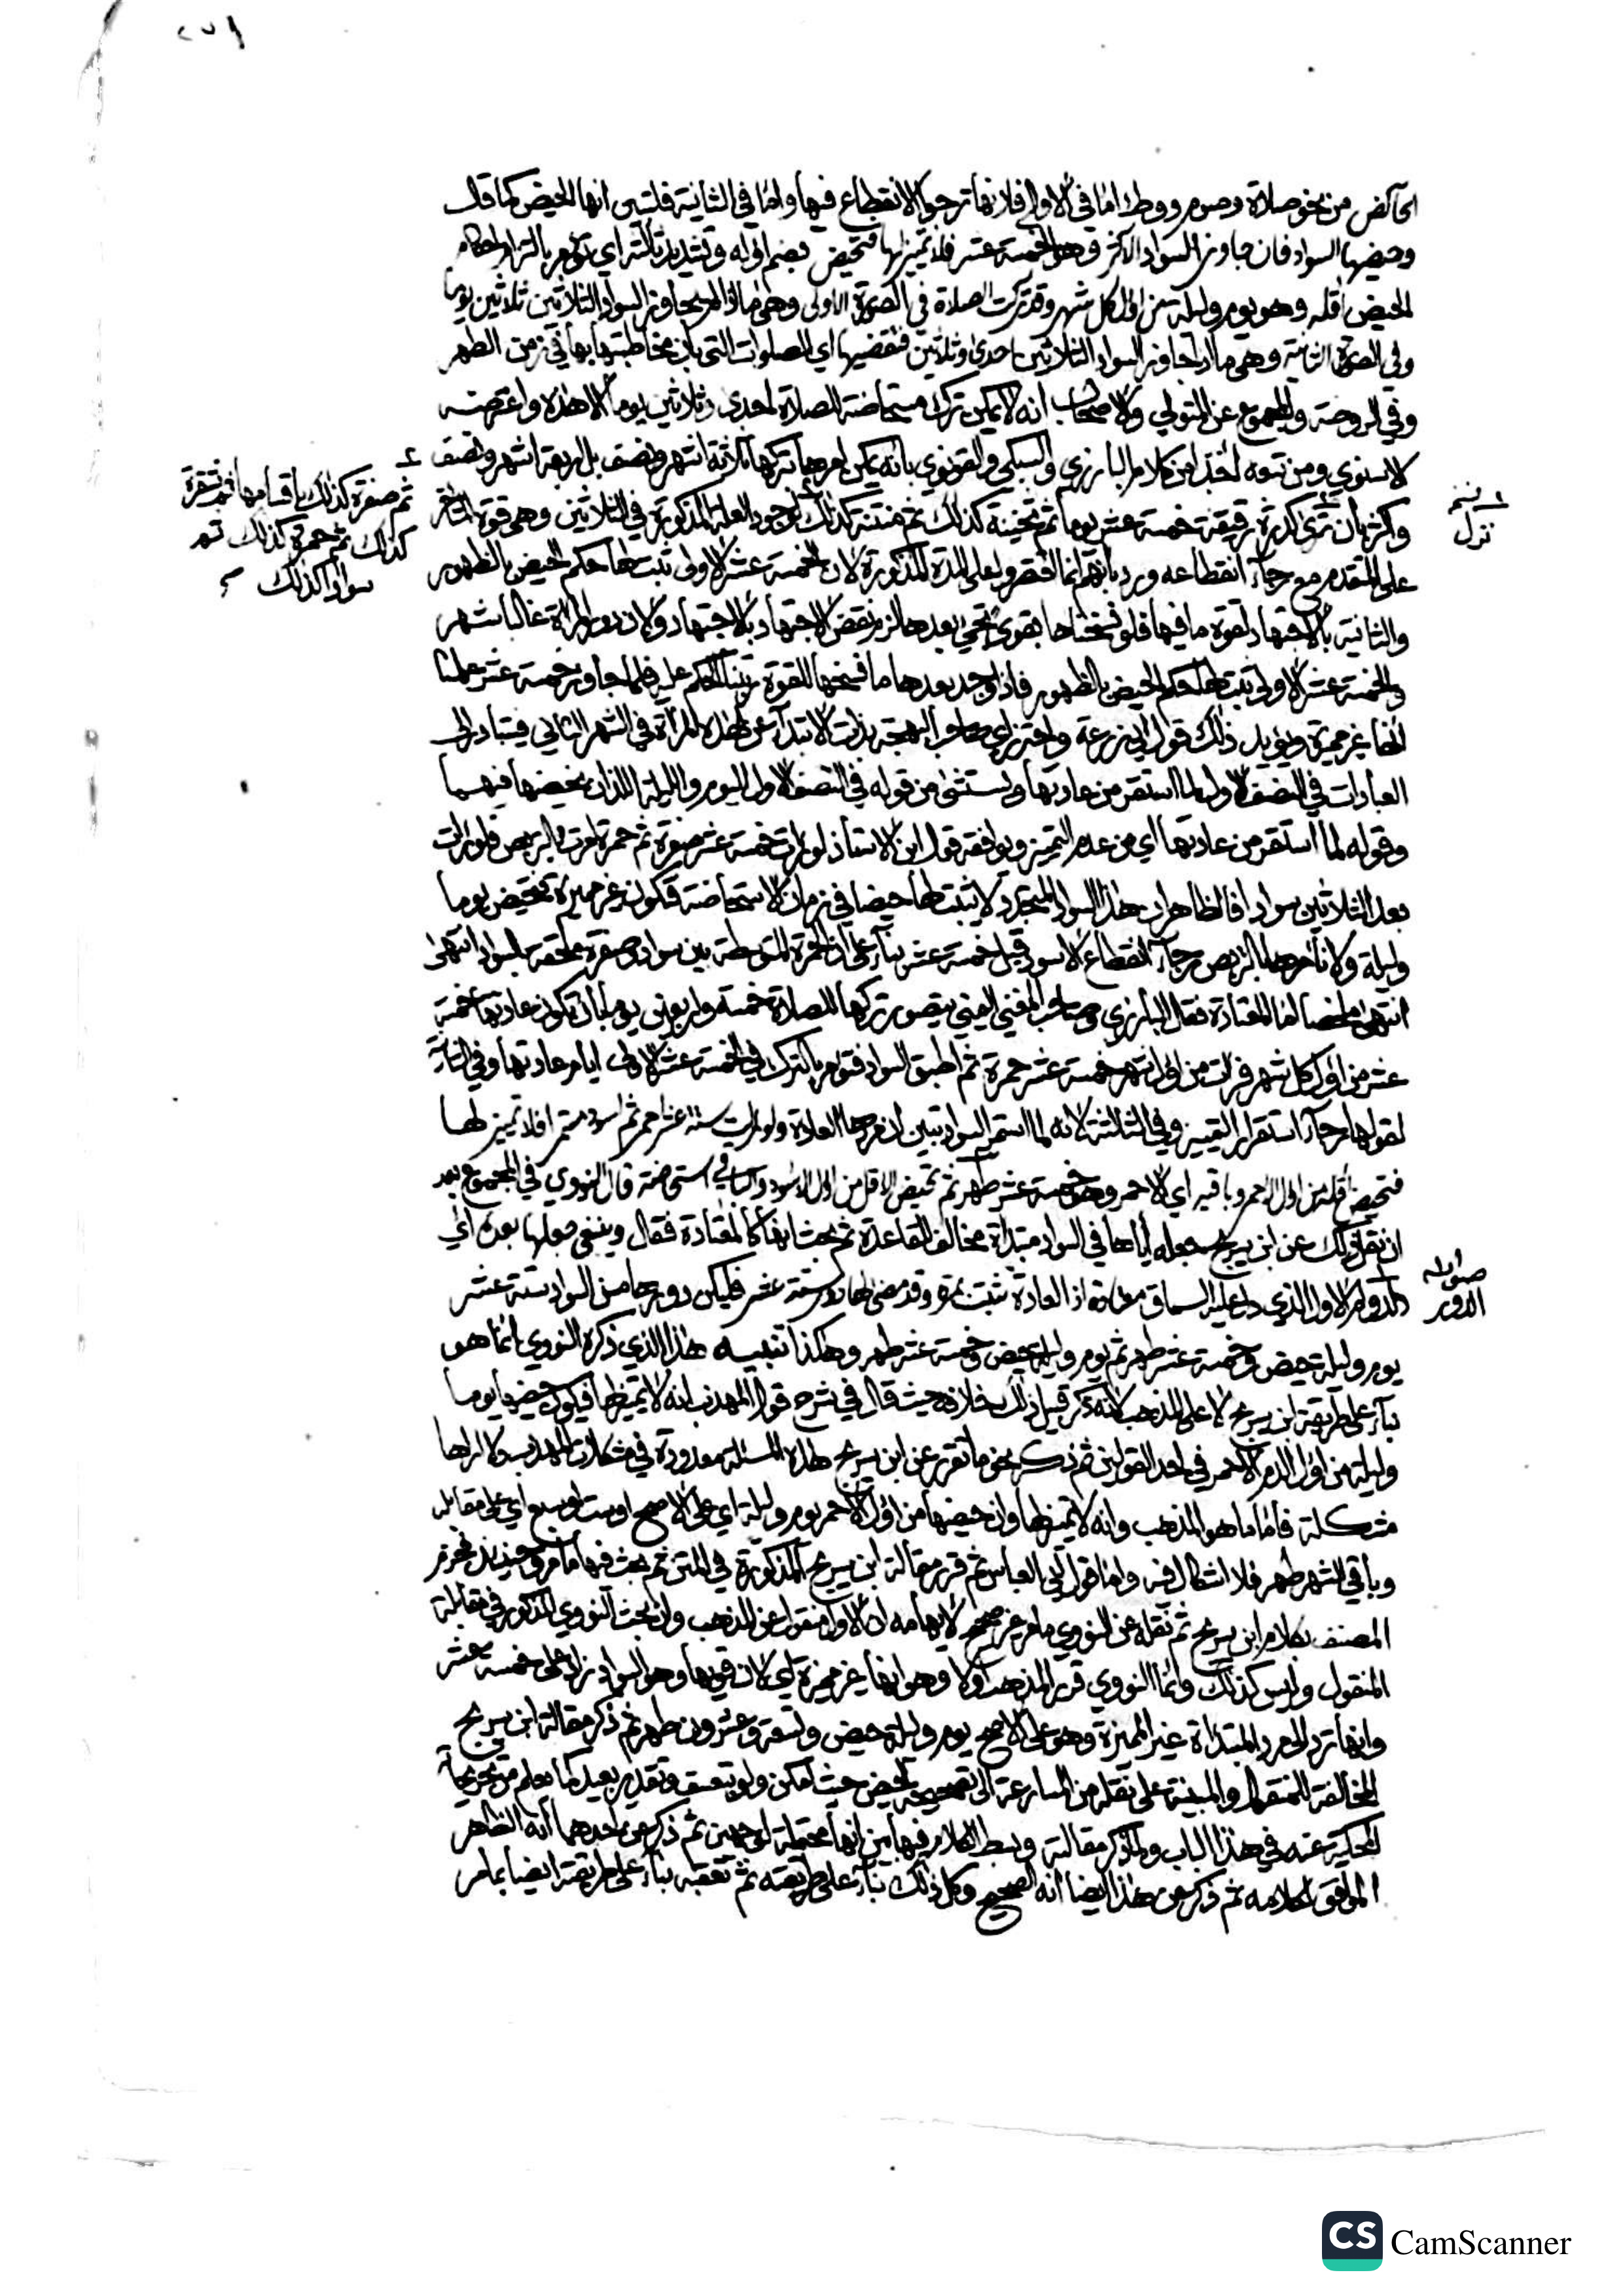 ٢٧١
الحائض من نحو صلاة وصوم ووطء اما في الاولى فلانها ترجوا الانقطاع فيها واما في الثانية فلتبين انها الحيض كما قال
وحيضها السواد فان جاوز السواد الاكثر وهو الخمسة عشر فلا تمييز لها فتحيض بضم اوله وتشديد ثالثه اي تؤمر بالتزام احكام
الحيض اقله وهو يوم وليلة من اول كل شهر وقد تركت الصلاة في الصورة الاولى وهي ما اذا لم يجاوز السواد الثلاثين ثلاثين يوما
وفي الصورة الثانية وهي ما اذا جاوز السواد الثلاثين احدى وثلاثين فتقضيها اي الصلوات التي بان مخاطبتها بها في زمن الطهر
وفي الروضة والمجموع عن المتولي والاصحاب انه لا يمكن ترك مستحاضة الصلاة احدى وثلاثين يوما الا هذه واعترضه
الاسنوي ومن تبعه اخذا من كلام البارزي والسبكي والقونوي بانه يمكن امرها بتركها ثلاثة اشهر ونصف بل اربعة اشهر ونصف
واكثر بان ترى كدرة رقيقة خمسة عشر يوما ثم ثخينة كذلك ثم منتنة كذلك لوجود العلة المذكورة في الثلاثين وهي قوة المتاخر
ثم صفرة كذلك باقسامها ثم شقرة
كذلك ثم حمرة كذلك ثم
سوادا كذلك
نزل
على المتقدم مع رجاء انقطاعه ورد بانهم انما اقتصروا على المدة المذكورة لان الخمسة عشر الاولى ثبت لها حكم الحيض بالظهور
والثانية بالاجتهاد لقوة ما فيها فلو نسخناها بقوي يجيء بعدها لزم نقض الاجتهاد بالاجتهاد ولان دور المراة غالبا شهر
والخمسة عشر الاولى يثبت لها حكم الحيض بالظهور فاذا وجد بعدها ما نسخها للقوة رتبنا الحكم عليه فلما جاوز خمسة عشر علمنا
انها غير مميزة ويؤيد ذلك قول ابي زرعة واحترز اي صاحب البهجة بذات الابتداء عن هذه المراة في الشهر الثاني فتبادر الى
العبادات في النصف الاول لما استقر من عادتها ويستثنى من قوله في النصف الاول اليوم والليلة اللذان نحيضها فيهما
وقوله لما استقر من عادتها اي من عدم التمييز ويوافقه قول ابن الاستاذ لو رات خمسة عشر صفرة ثم حمرة امرت بالتربص فلو رات
بعد الثلاثين سوادا فالظاهر ان هذا السواد المتجرد لا يثبت لها حيضا في زمان الاستحاضة فتكون غير مميزة فتحيض يوما
وليلة ولا نأمرها بالتربص رجاء انقطاع الاسود قبل خمسة عشر بناء على ان الحمرة المتوسطة بين سواد وصفرة ملحقة بالسواد انتهى
انتهى ملخصا اما المعتادة فقال البارزي وصاحب المغني اليمني يتصور تركها للصلاة خمسة واربعين يوما بان تكون عادتها خمسة
عشر من اول كل شهر فرات من اول شهر خمسة عشر حمرة ثم اطبق السواد فتؤمر بالترك في الخمسة عشر الاولى ايام عادتها وفي الثانية
لقوتها رجاء استقرار التمييز وفي الثالثة لانه لما استمر السواد تبين ان مردها العادة ولو رات ستة عشر احمر ثم اسود مستمرا فلا تمييز لها
فتحيض اقله من اول الاحمر وباقيه اي الاحمر وهو خمسة عشر طهر ثم تحيض الاقل من اول الاسود وباقيه استحاضة قال النووي في المجموع بعد
ان نقل ذلك عن ابن سريج جعله اياها في السواد مبتداة مخالف القاعدة ثم بحث انها كالمعتادة فقال وينبغي جعلها بعدة اي
الدوام الاول الذي دل عليه السياق معتادة اذ العادة تثبت بمرة وقد مضى لها دور ستة عشر فليكن دورها من السواد ستة عشر
صوابه
الدور
يوم وليلة حيض وخمسة عشر طهر ثم يوم وليلة حيض وخمسة عشر طهر وهكذا تنبيه هذا الذي ذكره النووي انما هو
بناء على طريقة ابن سريج لا على المذهب لانه ذكر قبيل ذلك خلافه حيث قال في شرح قول المهذب انه لا تمييز لها فيكون حيضها يوما
وليلة من اول الدم الاحمر في احد القولين ثم ذكر نحو ما تقرر عن ابن سريج هذه المسئلة معدودة في مشكلات المهذب ولا اراها
مشكلة فاما ما هو المذهب وانه لا تمييز لها وان حيضها من اول الاحمر يوم وليلة اي على الاصح او ست او سبع اي على مقابله
وباقي الشهر طهر فلا اشكال فيه واما قول ابي العباس ثم قرر مقالة ابن سريج المذكورة في المتن ثم بحث فيها ما مر وحينئذ فجزم
المصنف بكلام ابن سريج ثم نقله عن النووي ما مر غير صحيح لايهامه ان الاول منقول عن المذهب وان بحث النووي المذكور في مقابلة
المنقول وليس كذلك وانما النووي قرر المذهب اولا وهو انها غير مميزة اي لان قويها وهو السواد زاد على خمسة عشر
وانها ترد الى مرد المبتداة غير المميزة وهو على الاصح يوم وليلة حيض وتسعة وعشرون طهر ثم ذكر مقالة ابن سريج
المخالفة للمنقول والمبنية على نقله من المسارعة الى تصحيحه الحيض حيث امكن ولو بتعسف وتقدير بعيد كما يعلم من تخريجاته
المحكية عنه في هذا الباب ولما ذكر مقالته وبسط الكلام فيها بين انها محتملة لوجهين ثم ذكر عن احدهما انه الظاهر
الموافق لكلامه ثم ذكر عن هذا ايضا انه الصحيح وكل ذلك بناء على طريقته ثم تعقبه بناء على طريقته ايضا بما مر
CS CamScanner